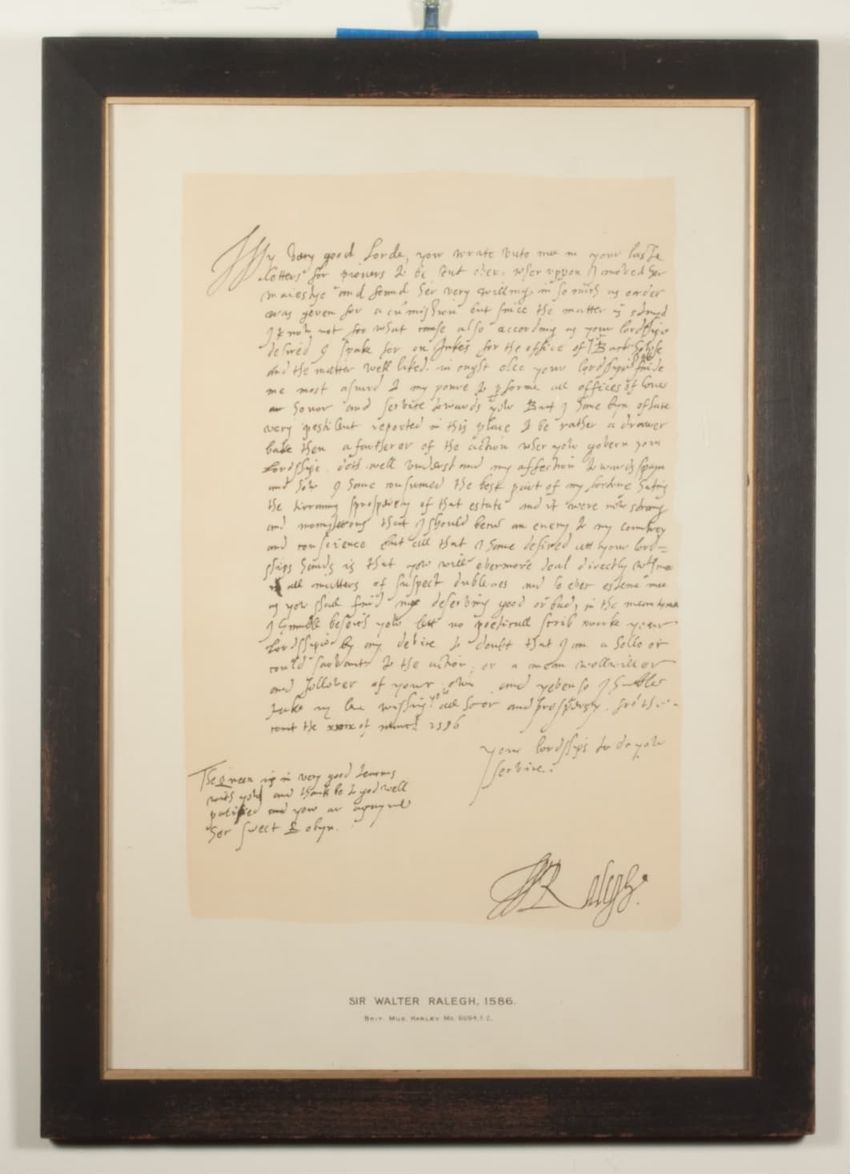 My very good Lorde, yow wrate vnto mee in your laste
letters for pioners to be sent over. wher uppon I moved her
maiestye and found her very willing, in so mich as order
was geven for a cumishion but since the matter is stayd
I know not for what cause also according as your lordshipe
desired I spake for on Jukes for the office of
and the matter well liked. in ought elce your lordshipe shall finde
me most asured to my poure to performe all offices of love
honor and service towards yow But I have byn of late
very pestilent reported in this place to be rather a drawer
bake then a fartherer of the action wher yow govern your
Lordshipe doth well understand my affection towards Spayn
and how I have consumed the best part of my fortune hating
the tirranus sprosperety of that estate and it were now strang
and monsterous that I should becum an enemy to my countrey
and conscience but all that I have desired att your lord=
ships hands is that yow will evermore deal directly with mee
in all matters of suspect dublenes and so ever esteme mee
as yow shall find me deserving good or bad, in the mean tyme
I humble beseich yow lett no poeticall scrib worke your
Lordshipe by any device to doubt that I am a hollo or
could sarvant to the action, or a mean wellwiller
and follower of your own and yeven so I humble
take my leve wishing yow all honor and prosperety. from the
court the of march 1586
your lordships to do yow
service.
The Queen is in very good tearms
with yow and thanks be to god well
pacified and yow ar agayne
her sweet Robyn.
W Ralegh.
SIR WALTER RALEGH, 1586.
BRIT. MUS. HARLEY MS. 6994, F. 2.